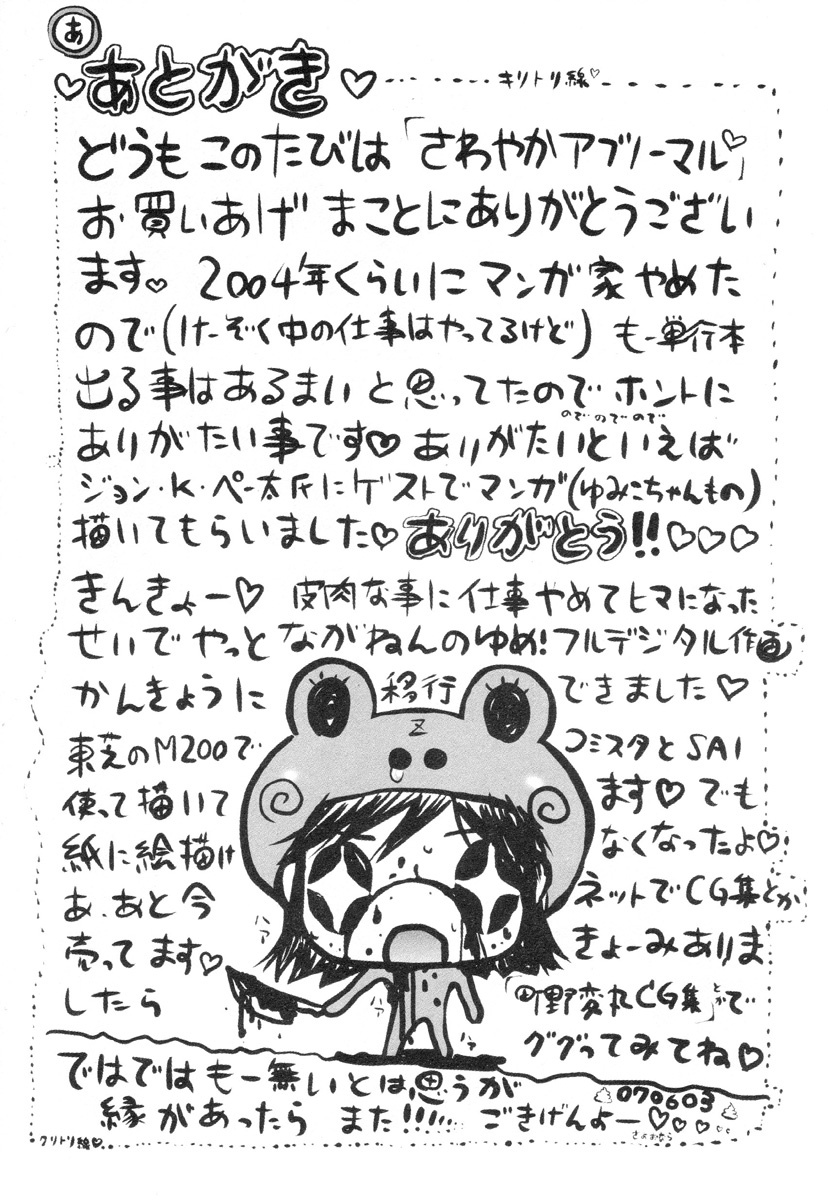 あ
あとがき♡
キリトリ線♡
どうも このたびは「さわやかアブノーマル♡」
お買いあげ まことにありがとうござい
ます♡ 2004年くらいに マンガ家 やめた
ので(けーぞく中の仕事はやってるけど) もー単行本
出る事はあるまい と思ってたので ホントに
のでのでので
ありがたい事です♡ ありがたいといえば
ジョン・K・ペー太氏にゲストでマンガ(ゆみこちゃんもの)
描いてもらいました♡ ありがとう!!♡♡♡
きんきょー♡ 皮肉な事に 仕事やめてヒマになった
せいで やっと ながねんのゆめ!フルデジタル作画
かんきょうに 移行 できました♡
Z
東芝のM200で コミスタとSAI
使って描いて ます♡ でも
紙に絵描け なくなったよ♡
あ、あと今 ネットでCG集とか
売ってます♡ きょーみありま
したら 「町野変丸CG集」とかで
ググってみてね♡
ハァ
ハァ
ハァ
ハァ
ではでは もー無いとは思うが
縁があったら また!!! ごきげんよー♡♡♡♡
070603
さよおなら
クリトリ線♡